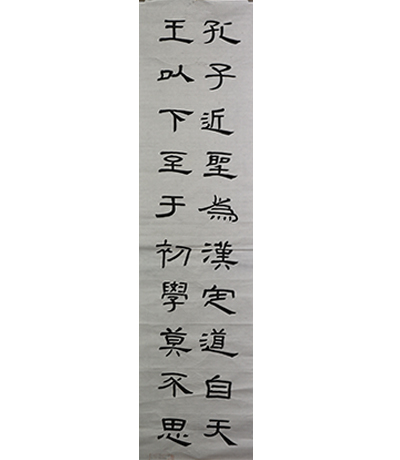 孔子近聖為漢定道自天
王以下至于初學莫不思